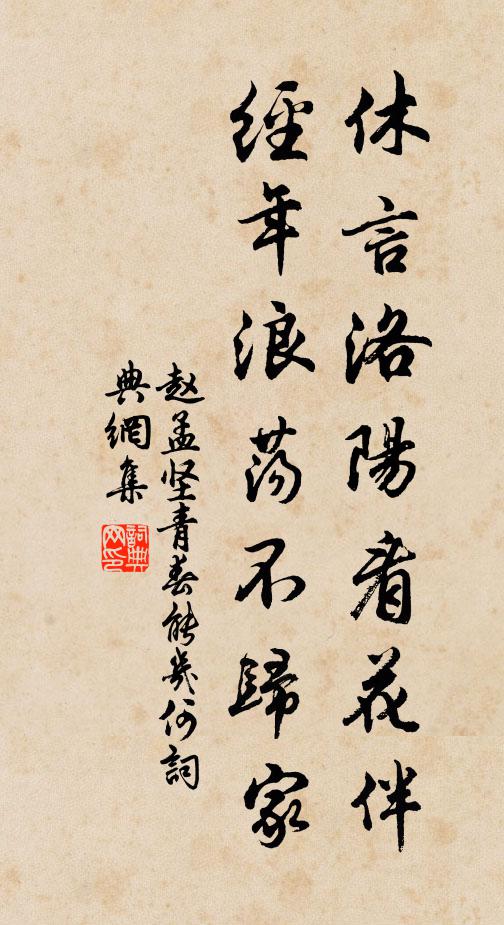 休言洛陽看花伴
經年浪蕩不歸家
赵孟坚青春能幾何詞
典網集
詞典網印